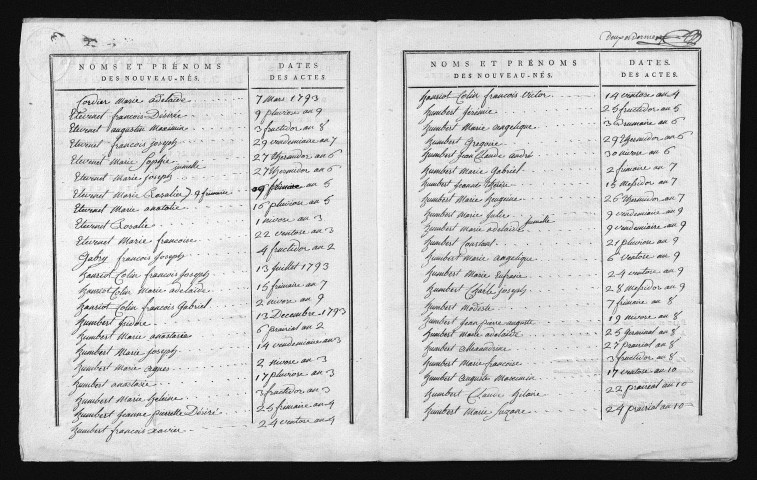 NOMS ET PRÉNOMS
DES NOUVEAU-NÉS.
DATES
DES ACTES.
Cordier Marie adelaide 7 Mars 1793
Etevenot francois Désirée 9 pluviose an 9
Etevenot augustin Maximin 3 fructidor an 8
Etevenot francois Joseph 29 vendemiaire an 7
Etevenot Marie Sophie 27 thermidor an 6
jumelle
Etevenot Marie Joseph 27 thermidor an 6
Etevenot Marie Rosalie 9 frimaire 09 frimaire an 5
Etevenot Marie anatolie 16 pluviose an 5
Etevenot Rosalie 1 nivose an 3
Etevenot Marie francoise 22 ventose an 3
Gabry francois Joseph 4 fructidor an 2
hanriot Colin francois Joseph 13 Juillet 1793
hanriot Colin Marie adelaide 15 frimaire an 7
hanriot Colin francois Gabriel 2 nivose an 9
humbert Isidore 13 Decembre 1793
humbert Marie anastasie 6 prairial an 2
humbert Marie Joseph 14 vendemiaire an 3
humbert Marie agnes 2 nivose an 3
humbert anastasie 17 pluviose an 3
humbert Marie helaine 3 fructidor an 3
humbert Jeanne pierrette Désiré 25 frimaire an 4
humbert francois xavier 24 ventose an 4
NOMS ET PRÉNOMS
DES NOUVEAU-NÉS.
DATES.
DES ACTES.
hanriot Colin francois victor 14 ventose an 4
humbert Jérémie 25 fructidor an 5
humbert Marie angelique 3 brumaire an 6
humbert Gregoire 29 thermidor an 6
humbert Jean Claude andré 30 nivose an 6
humbert Marie Gabriel 2 frimaire an 7
humbert Jeanne 15 Messidor an 7
humbert Marie Eugenie 26 thermidor an 7
humbert Marie Julie 9 vendemiaire an 9
jumelle
humbert Marie adelaide 9 vendemiaire an 9
humbert Constant 21 pluviose an 9
humbert Marie angelique 6 ventose an 9
humbert Marie Eufrasie 24 ventose an 9
humbert Charle Joseph 28 Messidor an 9
humbert Modeste 7 frimaire an 8
humbert Jean pierre auguste 19 nivose an 8
humbert Marie adelaide 25 germinal an 8
humbert alexandrine 27 prairial an 8
humbert Marie francoise 3 fructidor an 8
humbert auguste Maximin 17 ventose an 10
humbert Claude hilaire 22 prairial an 10
humbert Marie Suzane 24 prairial an 10